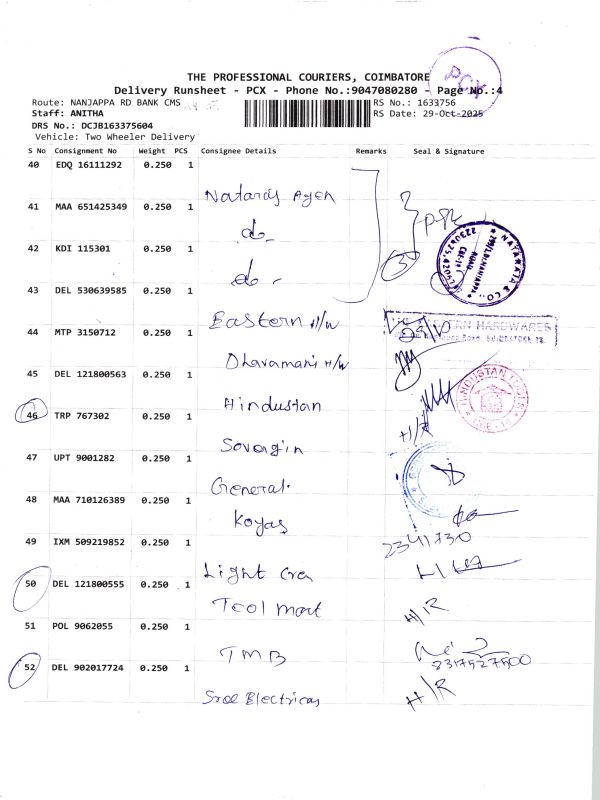 THE PROFESSIONAL COURIERS, COIMBATORE
PCX
Delivery Runsheet - PCX - Phone No.:9047080280 - Page No.:4
Route: NANJAPPA RD BANK CMS RS No.: 1633756
Staff: ANITHA RS Date: 29-Oct-2025
DRS No.: DCJB163375604
Vehicle: Two Wheeler Delivery
S No Consignment No Weight PCS Consignee Details Remarks Seal & Signature
40 EDQ 16111292 0.250 1
Nataraj Agen
41 MAA 651425349 0.250 1
do
42 KDI 115301 0.250 1
3
do
NATARAJA & CO.,
43 DEL 530639585 0.250 1
Eastern H/W
HARDWARES
44 MTP 3150712 0.250 1
Dhavamani H/W
45 DEL 121800563 0.250 1
Hindustan
HINDUSTAN
46 TRP 767302 0.250 1
H/R
Sovergin
47 UPT 9001282 0.250 1
General
48 MAA 710126389 0.250 1
Koyas
49 IXM 509219852 0.250 1
2341730
Light Cra
50 DEL 121800555 0.250 1
Tool mart H/R
51 POL 9062055 0.250 1
TMB
8317527500
52 DEL 902017724 0.250 1
Sree Electricas H/R